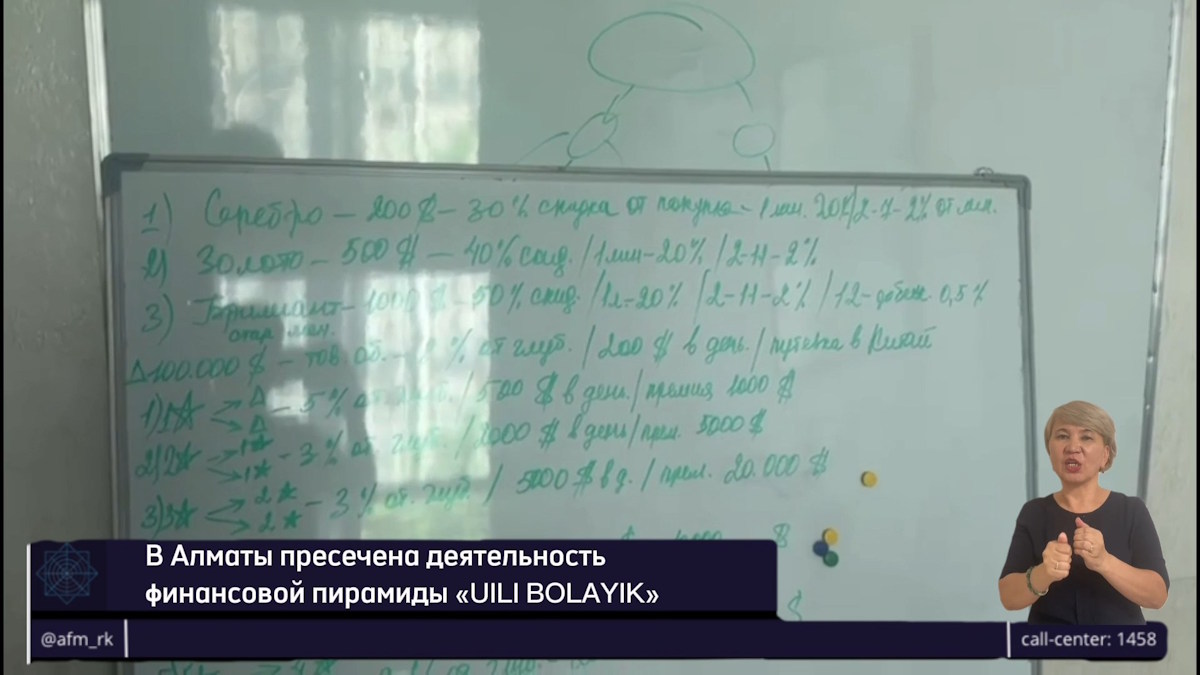 1) Серебро – 200 $ – 30 % скидка от покупка – 1 лин. 20%/2-7-2% от лич.
2) Золото – 500 $ – 40% скид. / 1 лин – 20% / 2-11-2%
3) Брилиант – 1000 $ – 50% скид. / 1л – 20% / 2-11-2% / 12- 0,5%
Δ 100.000 $ – тов. об. – % от глуб. / 200 $ в день. / путевка в Китай
1) 1☆ Δ Δ – 5 % от глуб. / 500 $ в ден. / премия 1000 $
2) 2☆ 1☆ 1☆ – 3 % от глуб. / $ в день / прем. 5000 $
3) 3☆ 2☆ 2☆ – 3 % от. глуб. / 5000 $ в д. / прем. 20.000 $
$
$
В Алматы пресечена деятельность
финансовой пирамиды «UILI BOLAYIK»
@afm_rk
call-center: 1458